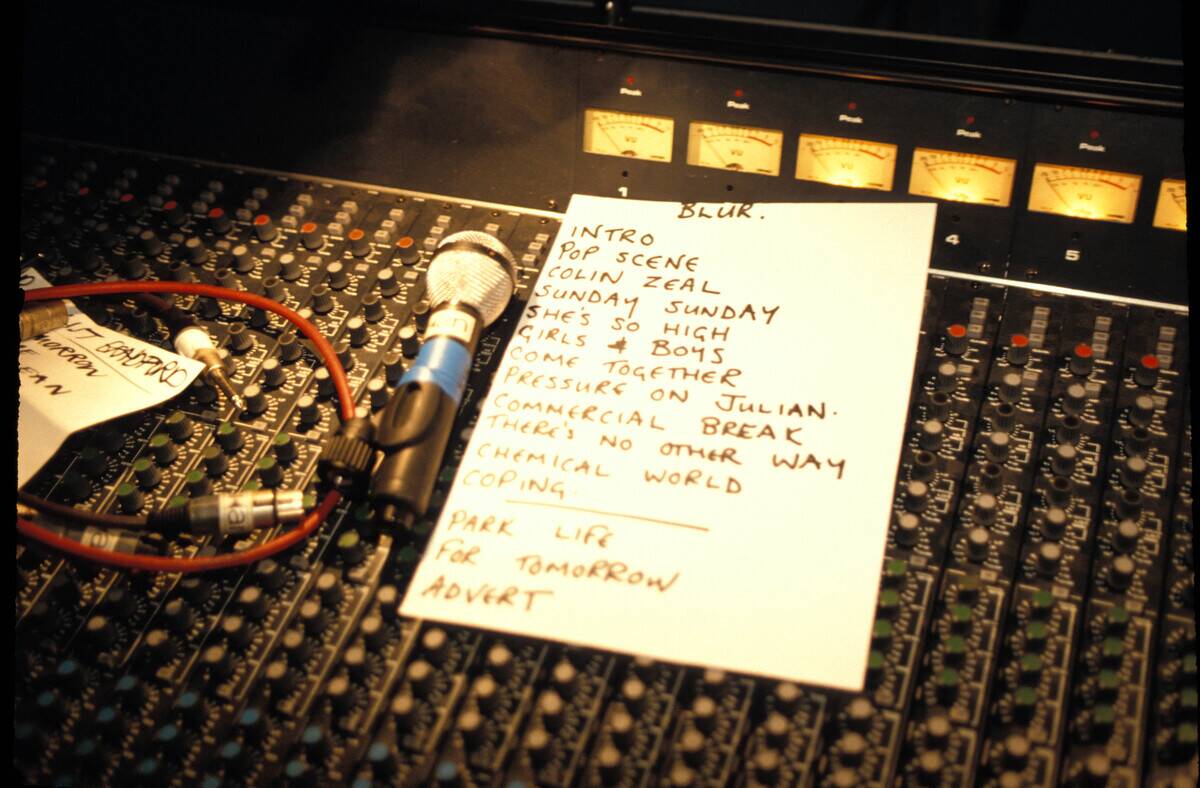 Peak
Peak
Peak
Peak
Peak
VU
VU
VU
VU
VU
1
4
5
BLUR.
INTRO
POP SCENE
COLIN ZEAL
SUNDAY SUNDAY
SHE'S SO HIGH
GIRLS & BOYS
COME TOGETHER
PRESSURE ON JULIAN.
COMMERCIAL BREAK
THERE'S NO OTHER WAY
CHEMICAL WORLD
COPING.
PARK LIFE
FOR TOMORROW
ADVERT